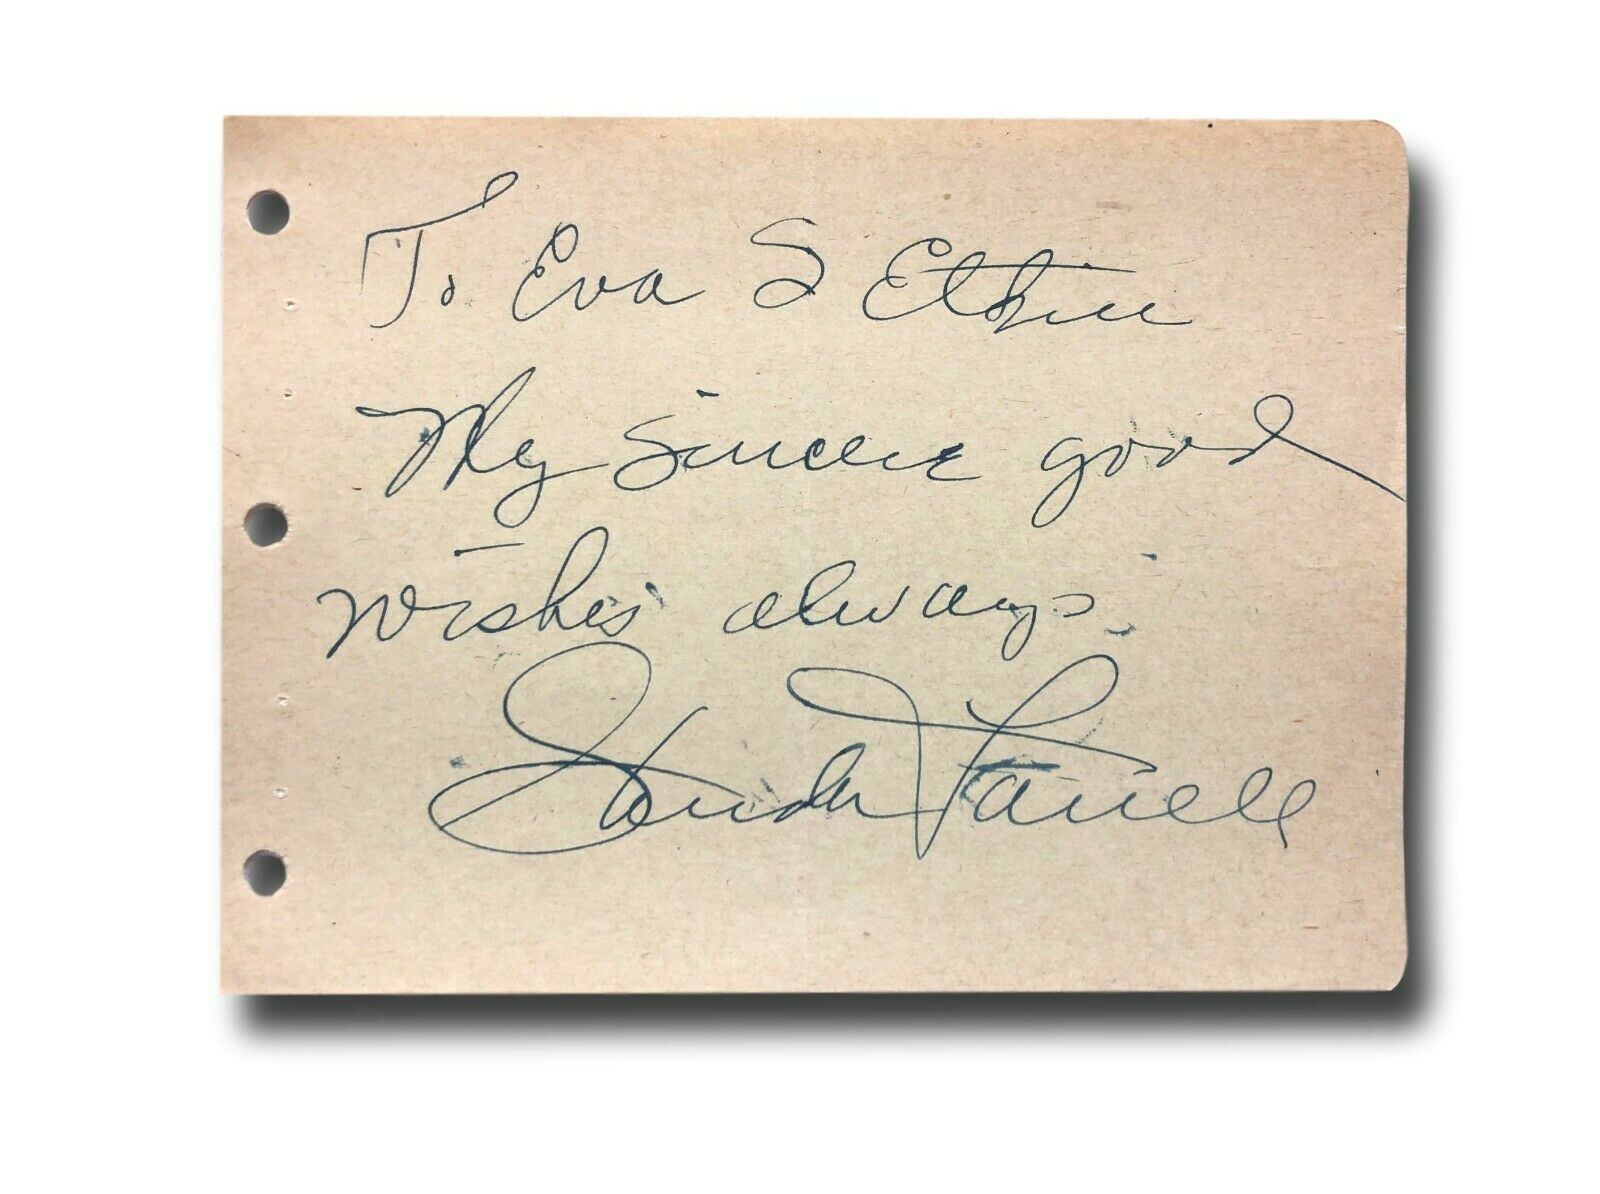 To Eva S Etkin
My sincere good
wishes always,
Glenda Farrell